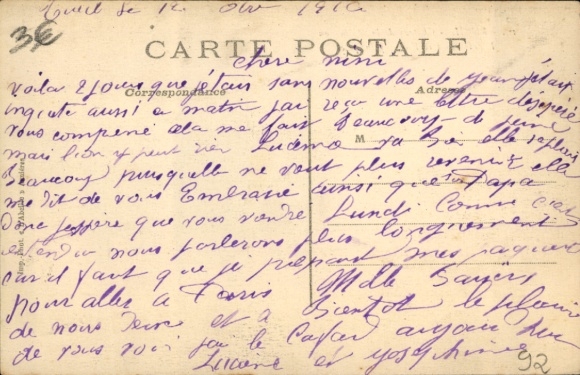 3€
CARTE POSTALE
chere nini
Correspondance
Adresse
voila 2 jours que j'etais sans nouvelles de
inquiete aussi a matin j'ai reçu une lettre désespéré
vous comprené cela me fait beaucoup de peine
M
mais l'on y peut rien
beaucoup puisquelle ne veut plus revenir elle
me dit de vous Embrassé ainsi que Papa
Donc j'espère que vous viendre Lundi Comme c'est
entendu nous parlerons plus longuement
car il faut que je prépare mes paquets
pour aller a Paris Mille Baisers
de nous deux et a Bientot le plaisir
de vous voir j'ai le Cafard aujour hui
Lucienne et Josephine
92